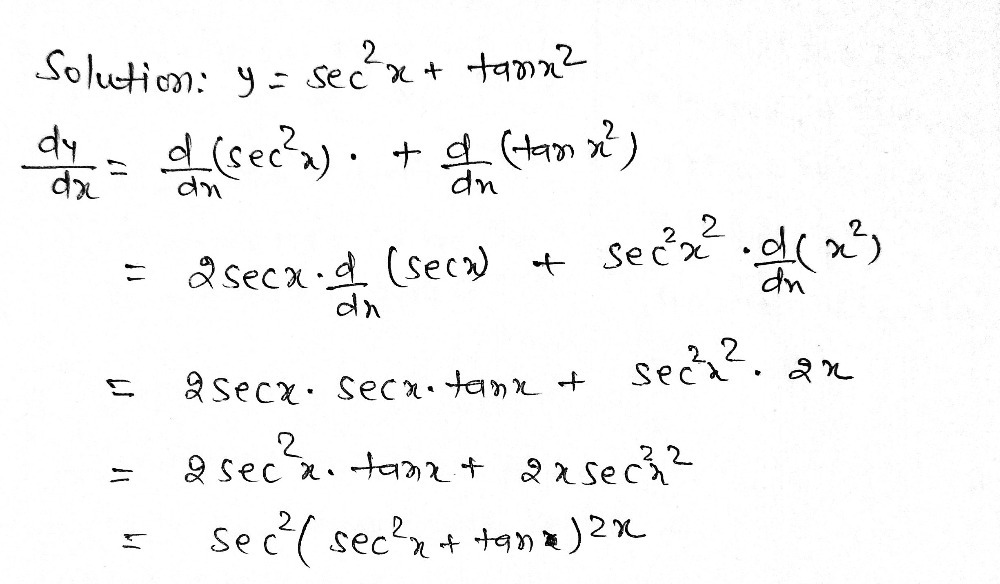 Solution: y = sec²x + tanx²
dy/dx = d/dx (sec²x) · + d/dx (tan x²)
= 2secx · d/dx (secx) + sec²x² · d/dx (x²)
= 2secx · secx · tanx + sec²x² · 2x
= 2sec²x · tanx + 2x sec²x²
= sec²( sec²x + tanx )2x